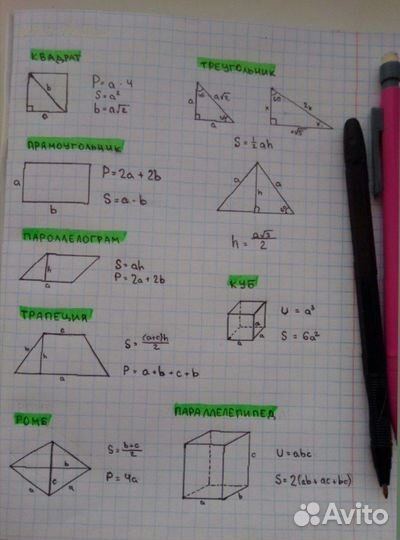 КВАДРАТ
b
a
P = a · 4
S = a²
b = a√2
ТРЕУГОЛЬНИК
45
a
a√2
45
a
60
x
2x
x√3
S = ½ ah
ПРЯМОУГОЛЬНИК
a
b
P = 2a + 2b
S = a · b
a
h
a
h = a√3/2
ПАРОЛЛЕЛОГРАМ
h
a
S = ah
P = 2a + 2b
КУБ
a
a
a
U = a³
S = 6a²
ТРАПЕЦИЯ
c
b
h
a
S = (a+c)h/2
P = a + b + c + b
РОМБ
b
c
a
a
S = b+c/2
P = 4a
ПАРАЛЛЕЛЕПИПЕД
c
a
b
U = abc
S = 2(ab + ac + bc)
Avito